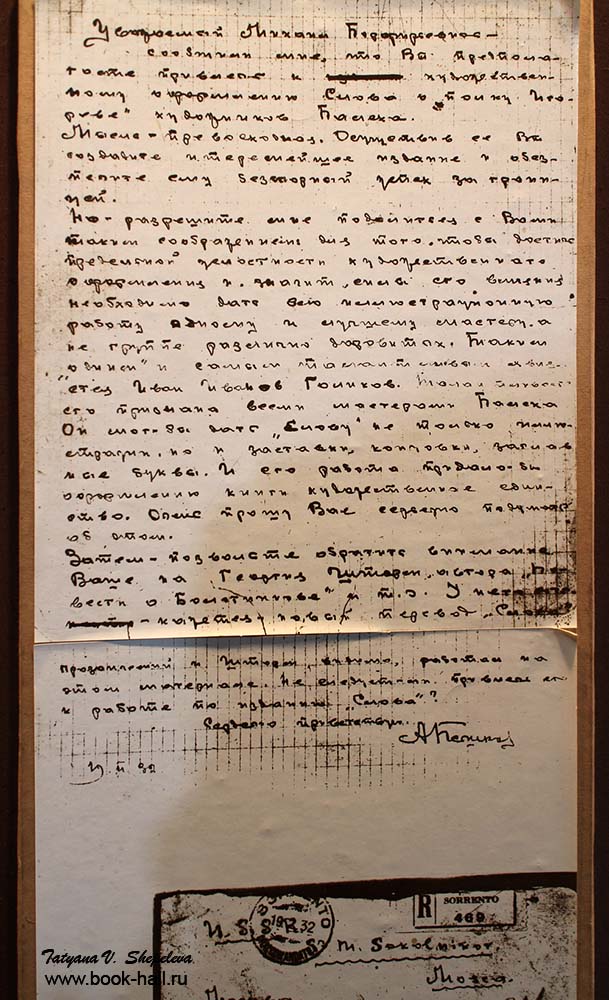 Уважаемый Михаил Порфирьевич –
сообщили мне, что Вы предпола-
гаете привлечь к художествен-
ному оформлению Слова о полку Иго-
реве" художников Палеха.
Мысль – превосходная. Осуществив ее Вы
создадите интереснейшее издание и обес-
печите ему безспорный успех за грани-
цей.
Но – разрешите мне поделиться с Вами
таким соображением: для того, чтобы достичь
предельной целостности художественного
оформления и, значит, силы его влияния
необходимо дать всю иллюстрационную
работу одному и лучшему мастеру, а
не группе различно даровитых. Таким
одним" и самым талантливым явля-
ется Иван Иванов Голиков.
его признана всеми мастерами Палеха
Он мог-бы дать „Слову" не только иллю-
страции, но и заставки, концовки, заглав-
ные буквы. И его работа придала-бы
оформлению книги художественное един-
ство. Очень прошу Вас серьезно подумать
об этом.
Затем – позвольте обратить внимание
Ваше на Георгия Шторма, автора „По-
вести о Болотникове" и т.д. У него
– кажется, новый перевод „Слова"
прозаический и Шторм, видимо, работал на
этом материале. Не следует ли привлечь его
к работе по изданию „Слова"?
Сердечно приветствую.
А Пешков
32
U.S.S.R.
SORRENTO
19 32
R SORRENTO
469
M. Sokolnikov.
Mosca
Tatyana V. Shepeleva
www.book-hall.ru